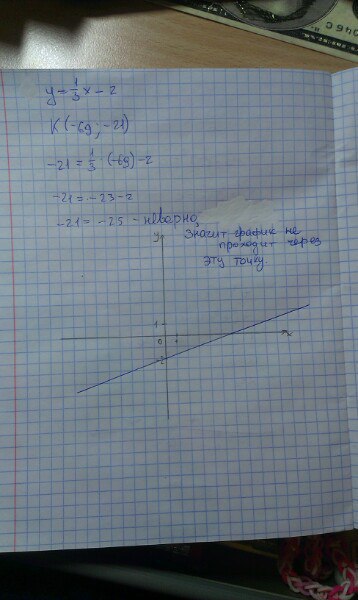 y = 1/3 x - 2
K (-69; -21)
-21 = 1/3 · (-69) - 2
-21 = -23 - 2
-21 = -25 - неверно,
Значит график не
проходит через
эту точку.
y
1
0 1
x
-2